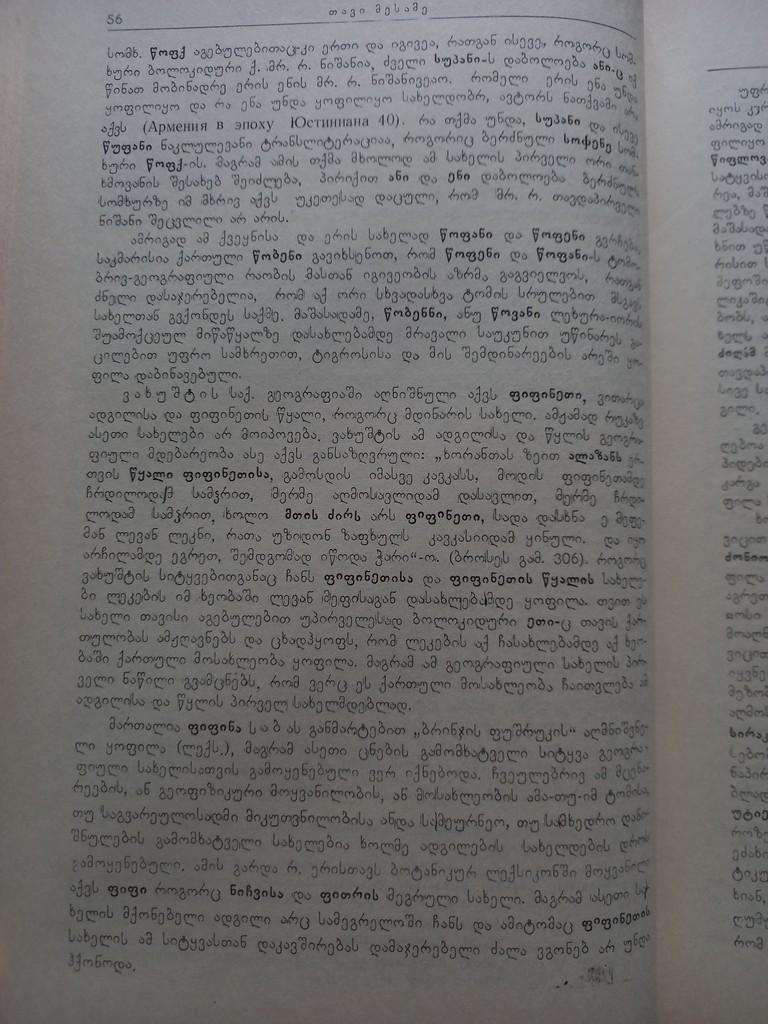 56
თავი მესამე
სომხ. წოფქ აგებულებითაც-კი ერთი და იგივეა, რათგან ისევე, როგორც სომ-
ხური ბოლოკიდური ქ. მრ. რ. ნიშანია, ძველი სუპანი-ს დაბოლოება ანი-ც იქ
წინათ მობინადრე ერის ენის მრ. რ. ნიშანივეაო. რომელი ერის ენა უნდა
ყოფილიყო და რა ენა უნდა ყოფილიყო სახელდობრ, ავტორს ნათქვამი არა
აქვს (Армения в эпоху Юстиниана 40). რა თქმა უნდა, სუპანი და ისევე
წუფანი ნაკლულევანი ტრანსლიტერაციაა, როგორიც ბერძნული სოფენე სომ-
ხური წოფქ-ის. მაგრამ ამის თქმა მხოლოდ ამ სახელის პირველი ორი თან-
ხმოვანის შესახებ შეიძლება, პირიქით ანი და ენი დაბოლოება ბერძნულს
სომხურზე იმ მხრივ აქვს უკეთესად დაცული, რომ მრ. რ. თავდაპირველი
ნიშანი შეცვლილი არ არის.
ამრიგად ამ ქვეყნისა და ერის სახელად წოფანი და წოფენი გვრჩება.
საკმარისია ქართული წობენი გავიხსენოთ, რომ წოფენი და წოფანი-ს ტომო-
ბრივ-გეოგრაფიული რაობის მასთან იგივეობის აზრმა გაგვიელვოს, რათგან
ძნელი დასაჯერებელია, რომ აქ ორი სხვადასხვა ტომის სრულებით მსგავს
სახელთან გვქონდეს საქმე. მაშასადამე, წობენნი, ანუ წოვანი ლეხურა-იორის
შუამოქცეულ მიწაწყალზე დასახლებამდე მრავალი საუკუნით უწინარეს გა-
ცილებით უფრო სამხრეთით, ტიგროსისა და მის შემდინარეების არეში ყო-
ფილა დაბინავებული.
ვახუშტის საქ. გეოგრაფიაში აღნიშნული აქვს ფიფინეთი, ვითარცა
ადგილისა და ფიფინეთის წყალი, როგორც მდინარის სახელი. ამჟამად რუკაზე
ასეთი სახელები არ მოიპოვება. ვახუშტის ამ ადგილისა და წყლის გეოგრა-
ფიული მდებარეობა ასე აქვს განსაზღვრული: „ხორანთას ზეით ალაზანს ერ-
თვის წყალი ფიფინეთისა, გამოსდის იმასვე კავკასს, მოდის ფიფინეთამდე
ჩრდილოდამ სამჴრით, მერმე აღმოსავლიდამ დასავლით, მერმე ჩრდი-
ლოდამ სამჴრით, ხოლო მთის ძირს არს ფიფინეთი, სადა დასხნა ე მეფე-
მან ლევან ლეკნი, რათა უზიდონ ზაფხულს კავკასიიდამ ყინული. და იყო
არჩილამდე ეგრეთ, შემდგომად იწოდა ჭარი“-ო. (ბროსეს გამ. 306). როგორც
ვახუშტის სიტყვებითგანაც ჩანს ფიფინეთისა და ფიფინეთის წყალის სახელე-
ბი ლეკების იმ ხეობაში ლევან მეფისაგან დასახლებამდე ყოფილა. თვით ეს
სახელი თავისი აგებულებით უპირველესად ბოლოკიდური ეთი-ც თავის ქარ-
თულობას ამჟღავნებს და ცხადჰყოფს, რომ ლეკების აქ ჩასახლებამდე აქ ხეო-
ბაში ქართული მოსახლეობა ყოფილა. მაგრამ ამ გეოგრაფიული სახელის პირ-
ველი ნაწილი გვამცნებს, რომ ვერც ეს ქართული მოსახლეობა ჩაითვლება ამ
ადგილისა და წყლის პირველ სახელმდებლად.
მართალია ფიფინა საბას განმარტებით „ბრინჯის ფუშრუკის“ აღმნიშვნე-
ლი ყოფილა (ლექს.), მაგრამ ასეთი ცნების გამომხატველი სიტყვა გეოგრა-
ფიული სახელისათვის გამოყენებული ვერ იქნებოდა. ჩვეულებრივ ამ მცენა-
რეების, ან გეოფიზიკური მოყვანილობის, ან მოსახლეობის ამა-თუ-იმ ტომისა,
თუ საგვარეულოსადმი მიკუთვნილობისა ანდა სამეურნეო, თუ სამხედრო დანი-
შნულების გამომხატველი სახელებია ხოლმე ადგილების სახელდების დროს
გამოყენებული. ამის გარდა რ. ერისთავს ბოტანიკურ ლექსიკონში მოყვანილი
აქვს ფიფი როგორც ნიჩვისა და ფითრის მეგრული სახელი. მაგრამ ასეთი სა-
ხელის მქონებელი ადგილი არც სამეგრელოში ჩანს და ამიტომაც ფიფინეთის
სახელის ამ სიტყვასთან დაკავშირებას დამაჯერებელი ძალა ვგონებ არ უნდა
ჰქონოდა.